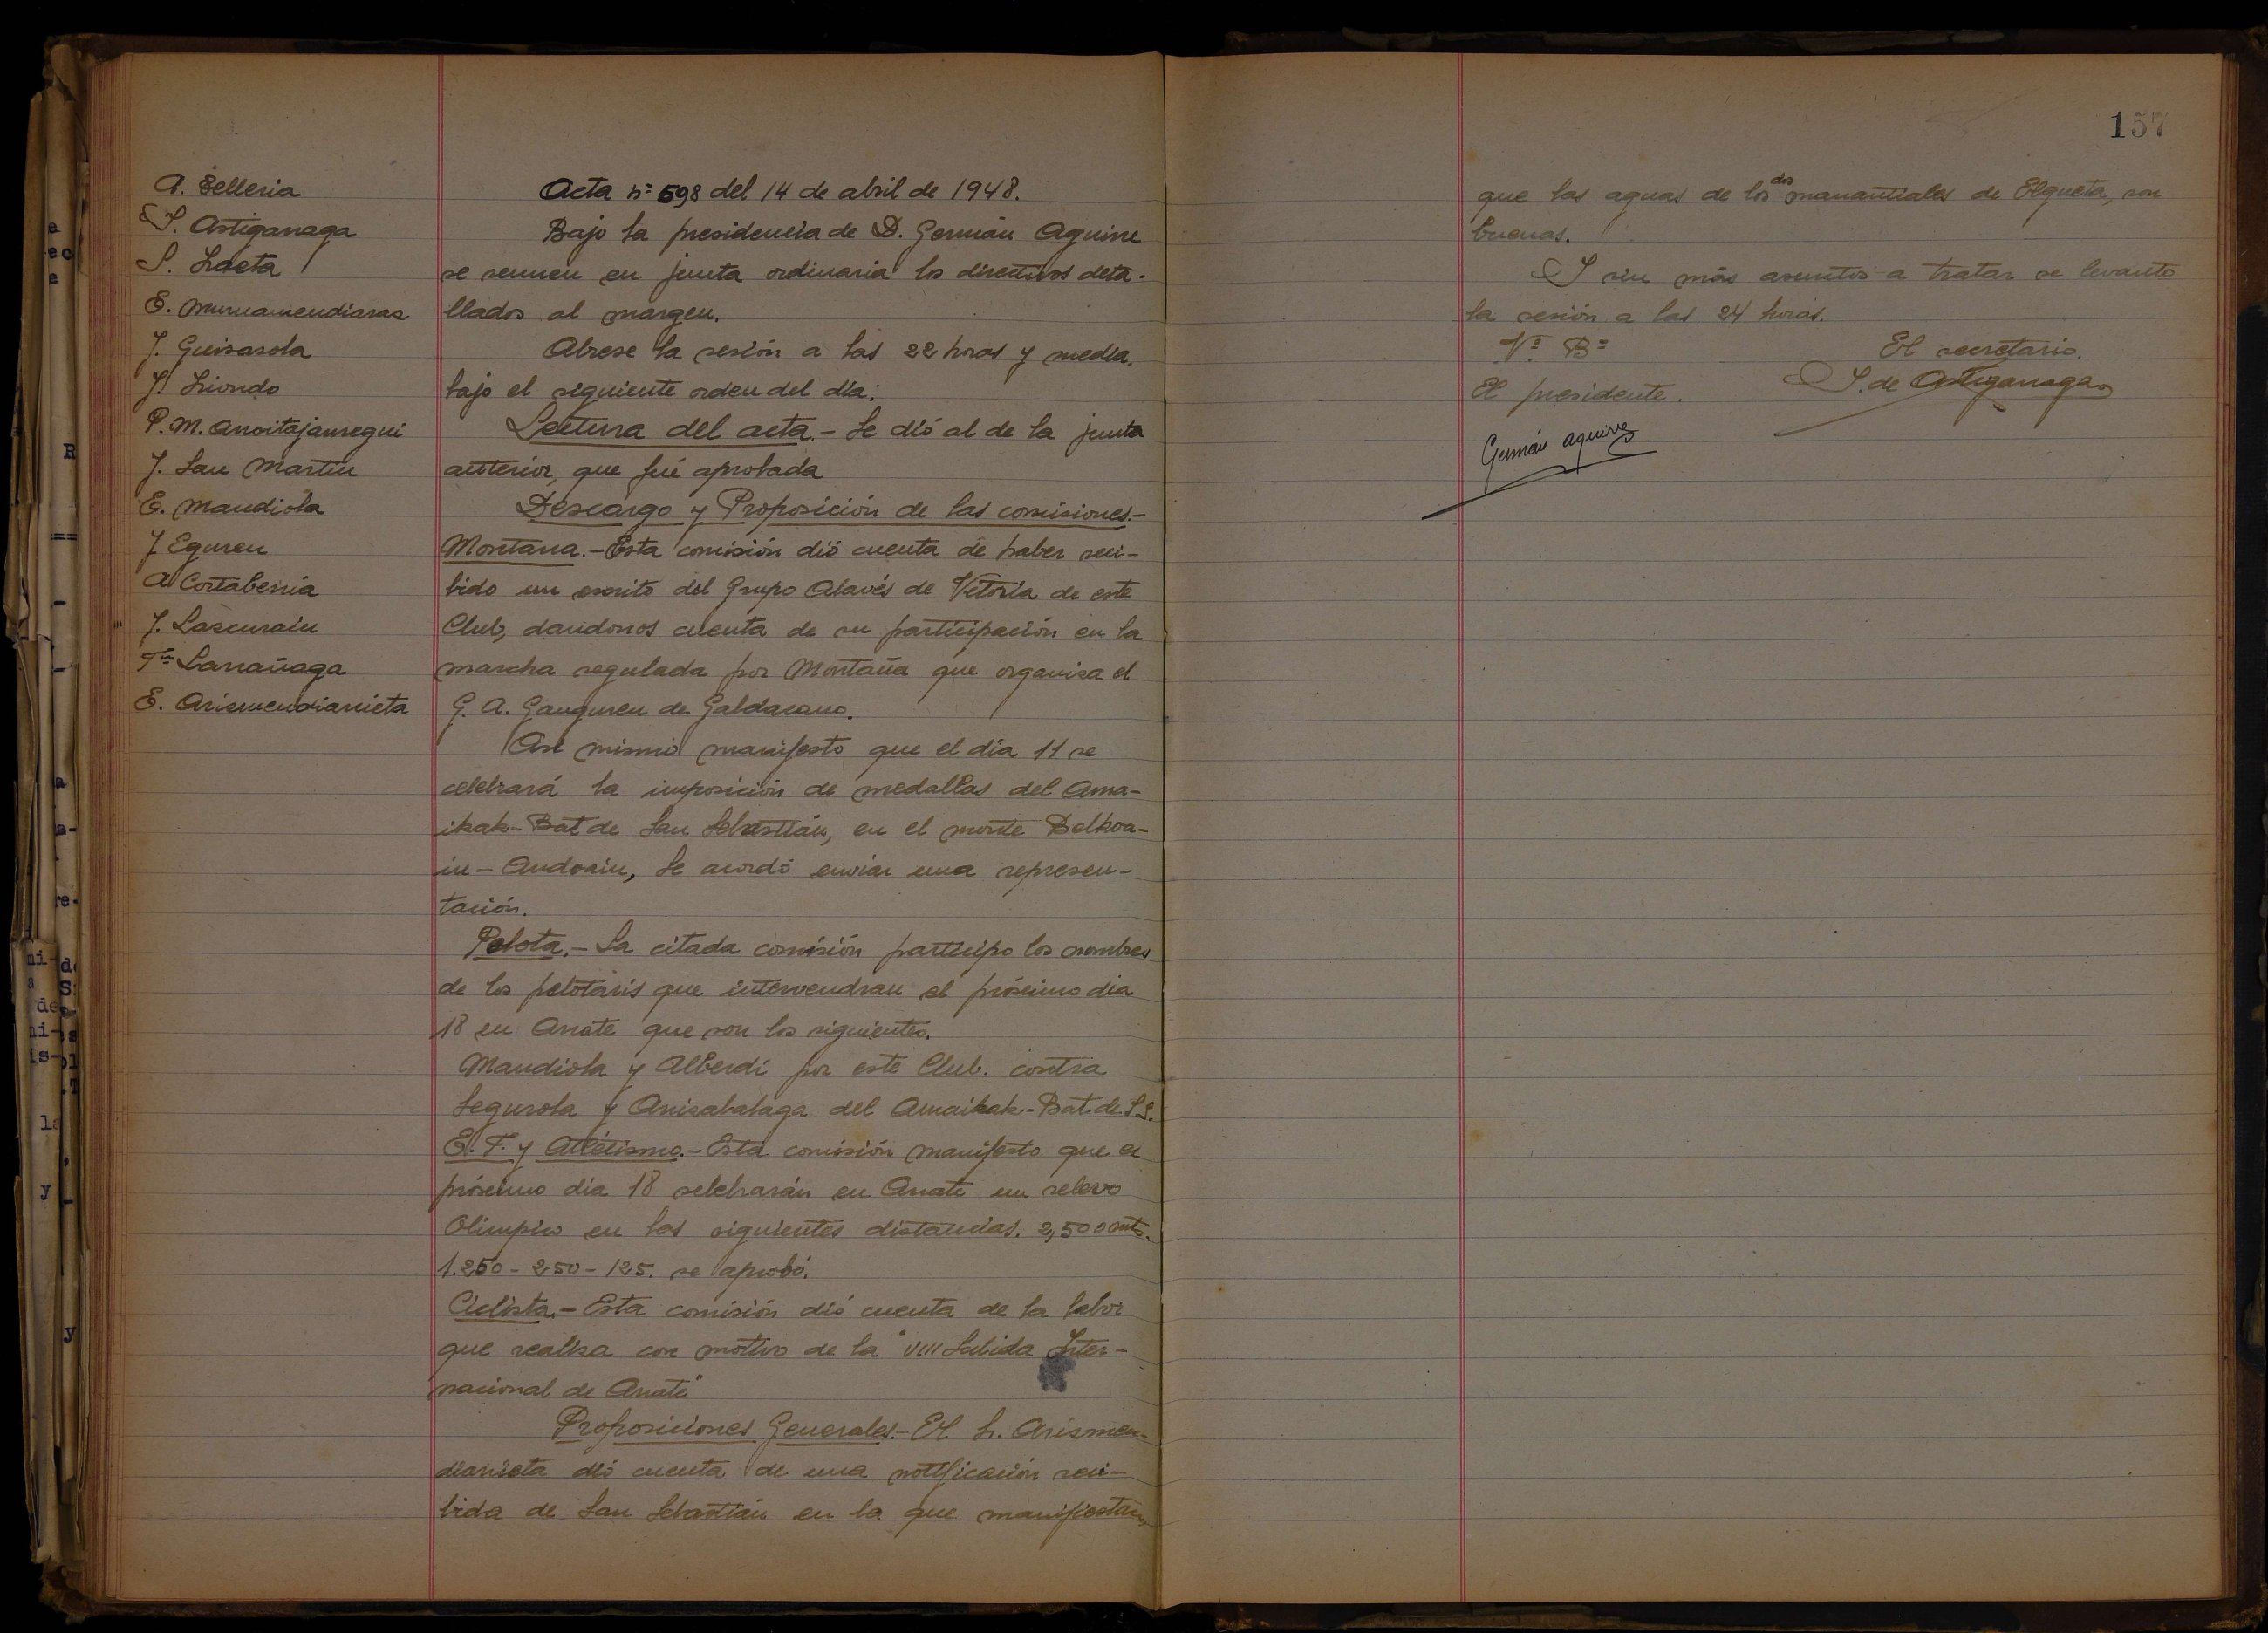 A. Telleria
S. Astiganaga
S. Loeta
E. Murua mendiaras
J. Guisasola
J. Liondo
P. M. Anoitajauregui
J. San Martin
E. Mandiola
J. Eguren
A. Cortaberria
J. Lascurain
Tn. Larrañaga
E. Arismendiarrieta
Acta nº 598 del 14 de abril de 1948.
Bajo la presidencia de D. Germán Aguirre
se reunen en junta ordinaria los directivos deta-
llados al margen.
Abrese la sesión a las 22 horas y media.
bajo el siguiente orden del día:
Lectura del acta.- Se dió al de la junta
anterior, que fué aprobada
Descargo y Proposición de las comisiones.-
Montana.- Esta comisión dió cuenta de haber reci-
bido un escrito del Grupo Alavés de Vitoria de este
Club, dandonos cuenta de su participación en la
marcha regulada por Montaña que organisa el
G. A. Ganguren de Galdacano.
Asi mismo manifesto que el día 11 se
celebrará la imposición de medallas del Ama-
ikak-Bat de San Sebastián, en el monte Belkoa-
in - Andoain, Se acordó enviar una represen-
tación.
Pelota.- La citada comisión participo los nombres
de los pelotaris que intervendran el próximo dia
18 en Arrate que son los siguientes.
Mandiola y Alberdi por este Club. contra
Segurola y Arrisabalaga del Amaikak-Bat de S.S.
E. F. y Atlétismo.- Esta comisión manifesto que el
próximo día 18 selebrarán en Arrate un relevo
Olimpico en las siguientes distancias. 2,500 mts.
1.250 - 250 - 125. se aprobó.
Ciclista.- Esta comisión dió cuenta de la labor
que realisa con motivo de la "VIII Subida Inter-
nacional de Arrate"
Proposiciones Generales.- El Sr. Arismen-
diarrieta dió cuenta de una notificación reci-
bida de San Sebastián en la que manifiestan,
157
que las aguas de los dos manantiales de Elgueta, son
buenas.
I sin más asuntos a tratar se levanto
la sesión a las 24 horas.
Vº Bº
El secretario.
El presidente.
S. de Astiganaga
Germán Aguirre